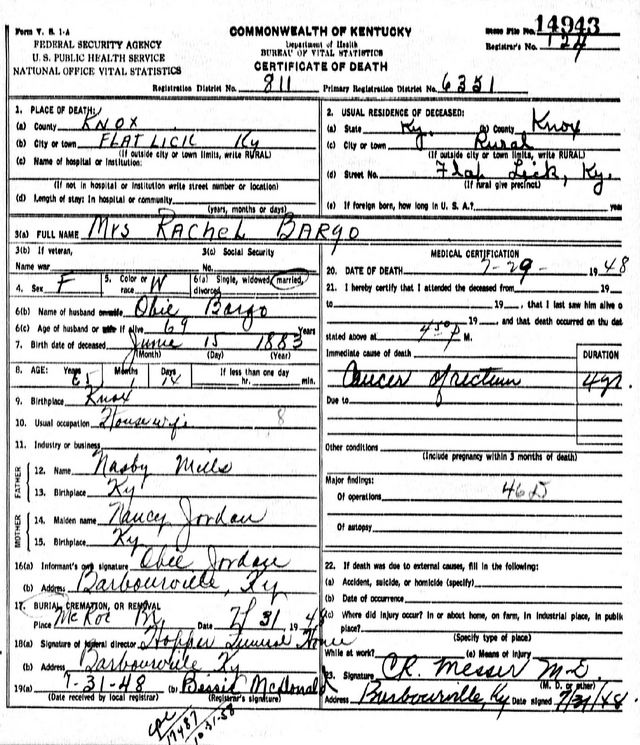 Form V. S. 1-A
FEDERAL SECURITY AGENCY
U. S. PUBLIC HEALTH SERVICE
NATIONAL OFFICE VITAL STATISTICS
COMMONWEALTH OF KENTUCKY
Department of Health
BUREAU OF VITAL STATISTICS
CERTIFICATE OF DEATH
File No. 14943
Registrar's No. 124
Registration District No. 811 Primary Registration District No. 6351
1. PLACE OF DEATH:
(a) County KNOX
(b) City or town FLAT LICK Ky
(If outside city or town limits, write RURAL)
(c) Name of hospital or institution:
(If not in hospital or institution write street number or location)
(d) Length of stay: In hospital or community
(years, months or days)
2. USUAL RESIDENCE OF DECEASED:
(a) State Ky. (b) County Knox
(c) City or town Rural
(If outside city or town limits, write RURAL)
(d) Street No. Flat Lick, Ky.
(If rural give precinct)
(e) If foreign born, how long in U. S. A.? years
3(a) FULL NAME Mrs RACHEL BARGO
3(b) If veteran, 3(c) Social Security
Name war No.
4. Sex F 5. Color or race W 6(a) Single, widowed, married, divorced
6(b) Name of husband or wife Obie Bargo
6(c) Age of husband or wife if alive 69 Years
7. Birth date of deceased June 15 1883
(Month) (Day) (Year)
8. AGE: Years 65 Months Days 14 If less than one day
hr. min.
9. Birthplace Knox
10. Usual occupation Housewife 8
11. Industry or business
FATHER
12. Name Nasby Mills
13. Birthplace Ky
MOTHER
14. Maiden name Nancy Jordan
15. Birthplace Ky
16(a) Informant's own signature Obie Jordan
(b) Address Barbourville, Ky
17. BURIAL, CREMATION, OR REMOVAL
Place McKoe Date 7/31 19
18(a) Signature of funeral director Hopper Funeral Home
(b) Address Barbourville Ky
19(a) 7-31-48 (b) Bessie McDonald
(Date received by local registrar) (Registrar's signature)
17487
10-31-58
MEDICAL CERTIFICATION
20. DATE OF DEATH 7-29- 1948
21. I hereby certify that I attended the deceased from 19
to 19 , that I last saw him alive o
19 , and that death occurred on the dat
stated above at 450 P M.
Immediate cause of death DURATION
Cancer of rectum 4 yr.
Due to
Other conditions
(Include pregnancy within 3 months of death)
Major findings:
Of operations
Of autopsy
22. If death was due to external causes, fill in the following:
(a) Accident, suicide, or homicide (specify)
(b) Date of occurrence
(c) Where did injury occur? In or about home, on farm, in industrial place, in public
place?
(Specify type of place)
While at work? (e) Means of injury
23. Signature C.R. Messer M-D
(M. D. or other)
Address Barbourville, Ky Date signed 7/31/48